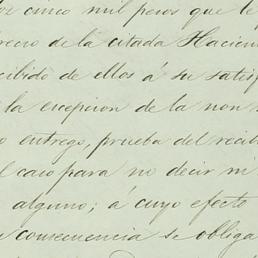 cinco mil pesos que le
precio de la citada Hacien
cibido de ellos á su satisf
la escepcion de la non
entrega, prueba del recib
caso para no decir ni
alguno; á cuyo efecto
consecuencia se obliga